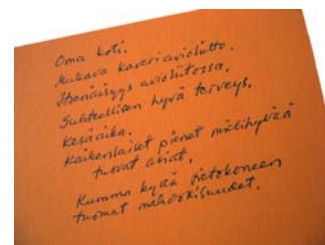 Oma koti.
Mukava kaveriavioliitto.
Itsenäisyys avioliitossa.
Suhteellisen hyvä terveys.
Kesäaika.
Kaikenlaiset pienet mielihyvää
tuovat asiat.
Kumma kyllä tietokoneen
tuomat mahdollisuudet.